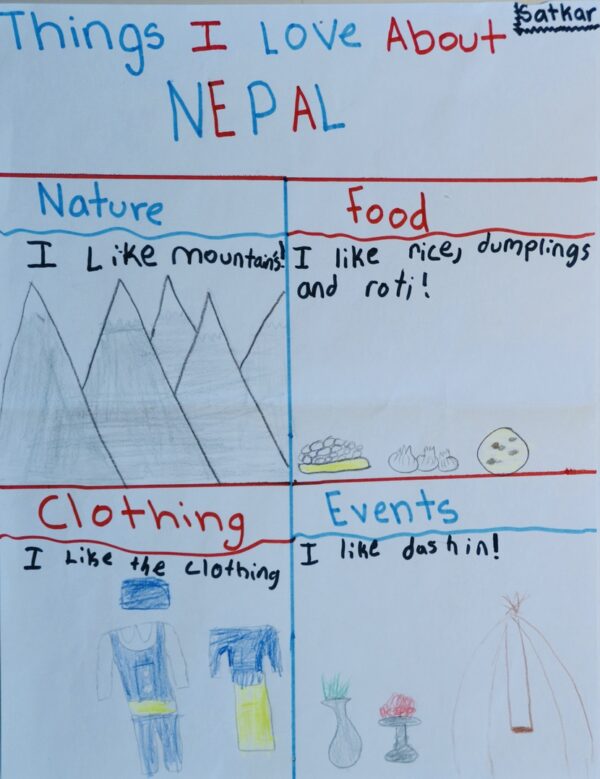 Things I Love About
Satkar
NEPAL
Nature
I Like mountains!
Food
I like rice, dumplings
and roti!
Clothing
I Like the clothing
Events
I like dashin!